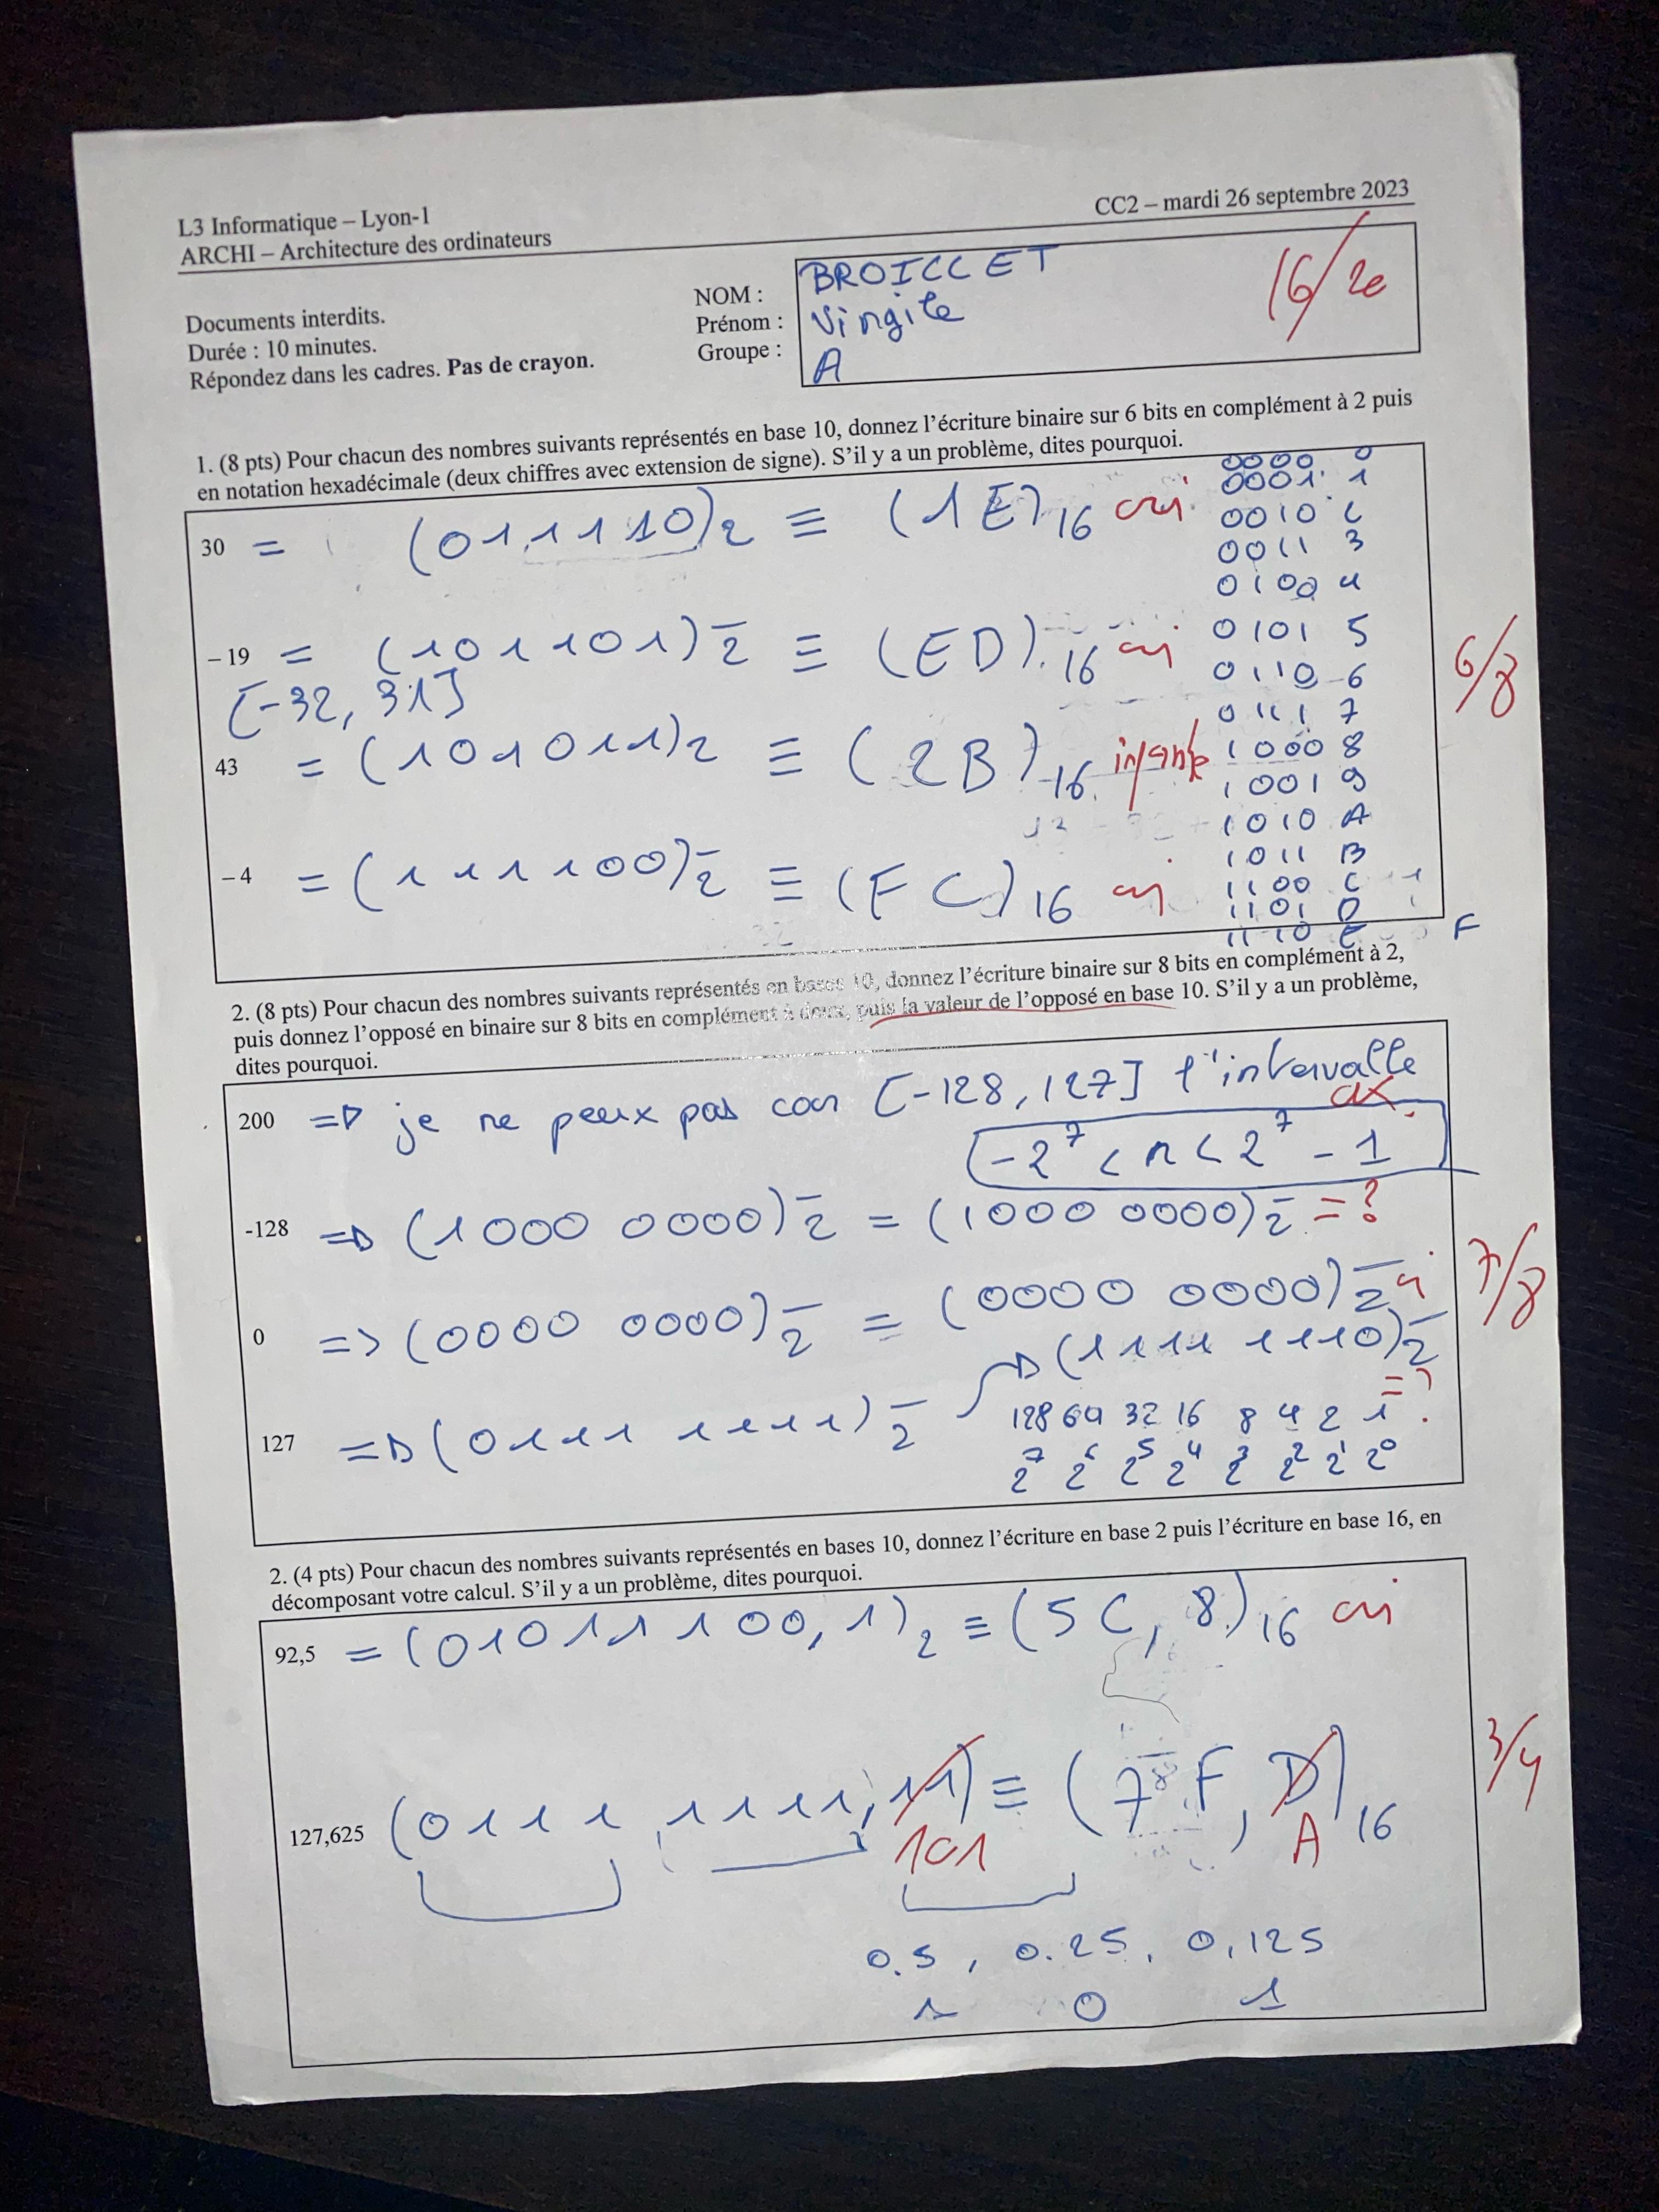 L3 Informatique – Lyon-1
CC2 – mardi 26 septembre 2023
ARCHI – Architecture des ordinateurs
Documents interdits.
Durée : 10 minutes.
Répondez dans les cadres. Pas de crayon.
NOM : BROICCET
Prénom : Virgile
Groupe : A
16/20
1. (8 pts) Pour chacun des nombres suivants représentés en base 10, donnez l'écriture binaire sur 6 bits en complément à 2 puis
en notation hexadécimale (deux chiffres avec extension de signe). S'il y a un problème, dites pourquoi.
30 = (011110)2 ≡ (1E)16 oui
– 19 = (101101)2̄ ≡ (ED)16 oui
[-32, 31]
43 = (101011)2 ≡ (2B)16
– 4 = (111100)2̄ ≡ (FC)16 oui
0000 0
0001 1
0010 2
0011 3
0100 4
0101 5
0110 6
0111 7
1000 8
1001 9
1010 A
1011 B
1100 C
1101 D
1110 E
F
6/8
2. (8 pts) Pour chacun des nombres suivants représentés en bases 10, donnez l'écriture binaire sur 8 bits en complément à 2,
puis donnez l'opposé en binaire sur 8 bits en complément à deux, puis la valeur de l'opposé en base 10. S'il y a un problème,
dites pourquoi.
200 => je ne peux pas car [-128, 127] l'intervalle
ok
-2⁷ < n < 2⁷ - 1
-128 => (1000 0000)2̄ = (1000 0000)2̄ = ?
0 => (0000 0000)2̄ = (0000 0000)2̄
127 => (0111 1111)2̄ → (1111 1110)2̄
= ?
128 64 32 16 8 4 2 1
2⁷ 2⁶ 2⁵ 2⁴ 2³ 2² 2¹ 2⁰
7/8
2. (4 pts) Pour chacun des nombres suivants représentés en bases 10, donnez l'écriture en base 2 puis l'écriture en base 16, en
décomposant votre calcul. S'il y a un problème, dites pourquoi.
92,5 = (01011100,1)2 ≡ (5C,8)16 oui
127,625 (0111 1111,11) ≡ (7F,D)16
101 A
0.5, 0.25, 0,125
1 0 1
3/4